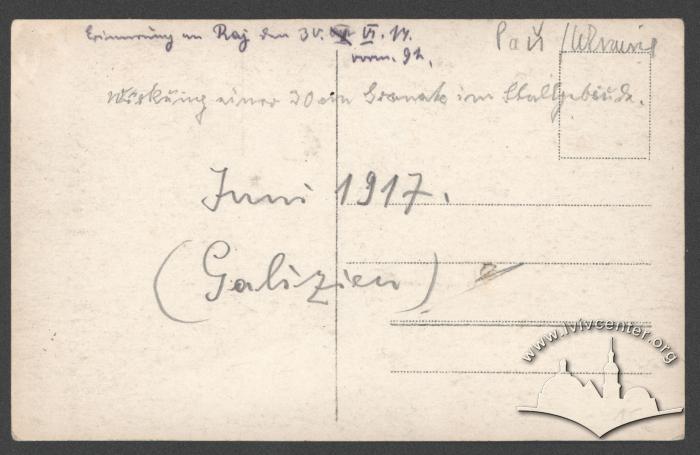 Erinnerung an Raj den 30. VI. 17.
Рай /Ukraine
vorm. 9h.
Wirkung einer 30 cm Granate im Stallgebäude.
Juni 1917.
(Galizien)
www.lvivcenter.org